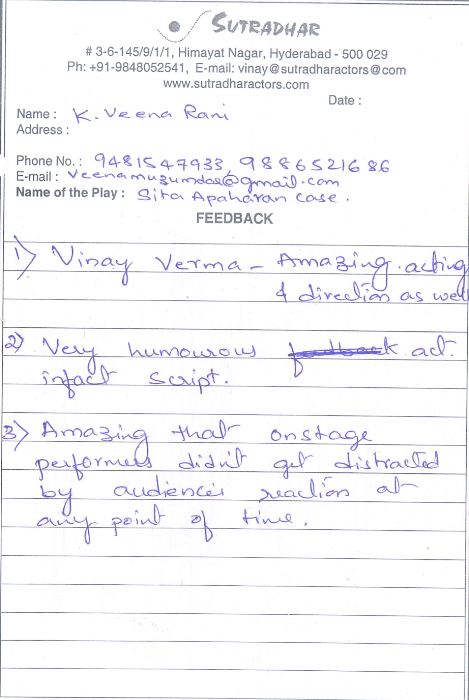 SUTRADHAR
# 3-6-145/9/1/1, Himayat Nagar, Hyderabad - 500 029
Ph: +91-9848052541, E-mail: vinay@sutradharactors@com
www.sutradharactors.com
Date :
Name : K. Veena Rani
Address :
Phone No. : 9481547933, 9886521686
E-mail : veenamuzumdar@gmail.com
Name of the Play : Sita Apaharan case.
FEEDBACK
1) Vinay Verma - Amazing acting
& direction as well
2) Very humourous feedback act.
infact script.
3) Amazing that onstage
performers didn't get distracted
by audience's reaction at
any point of time.